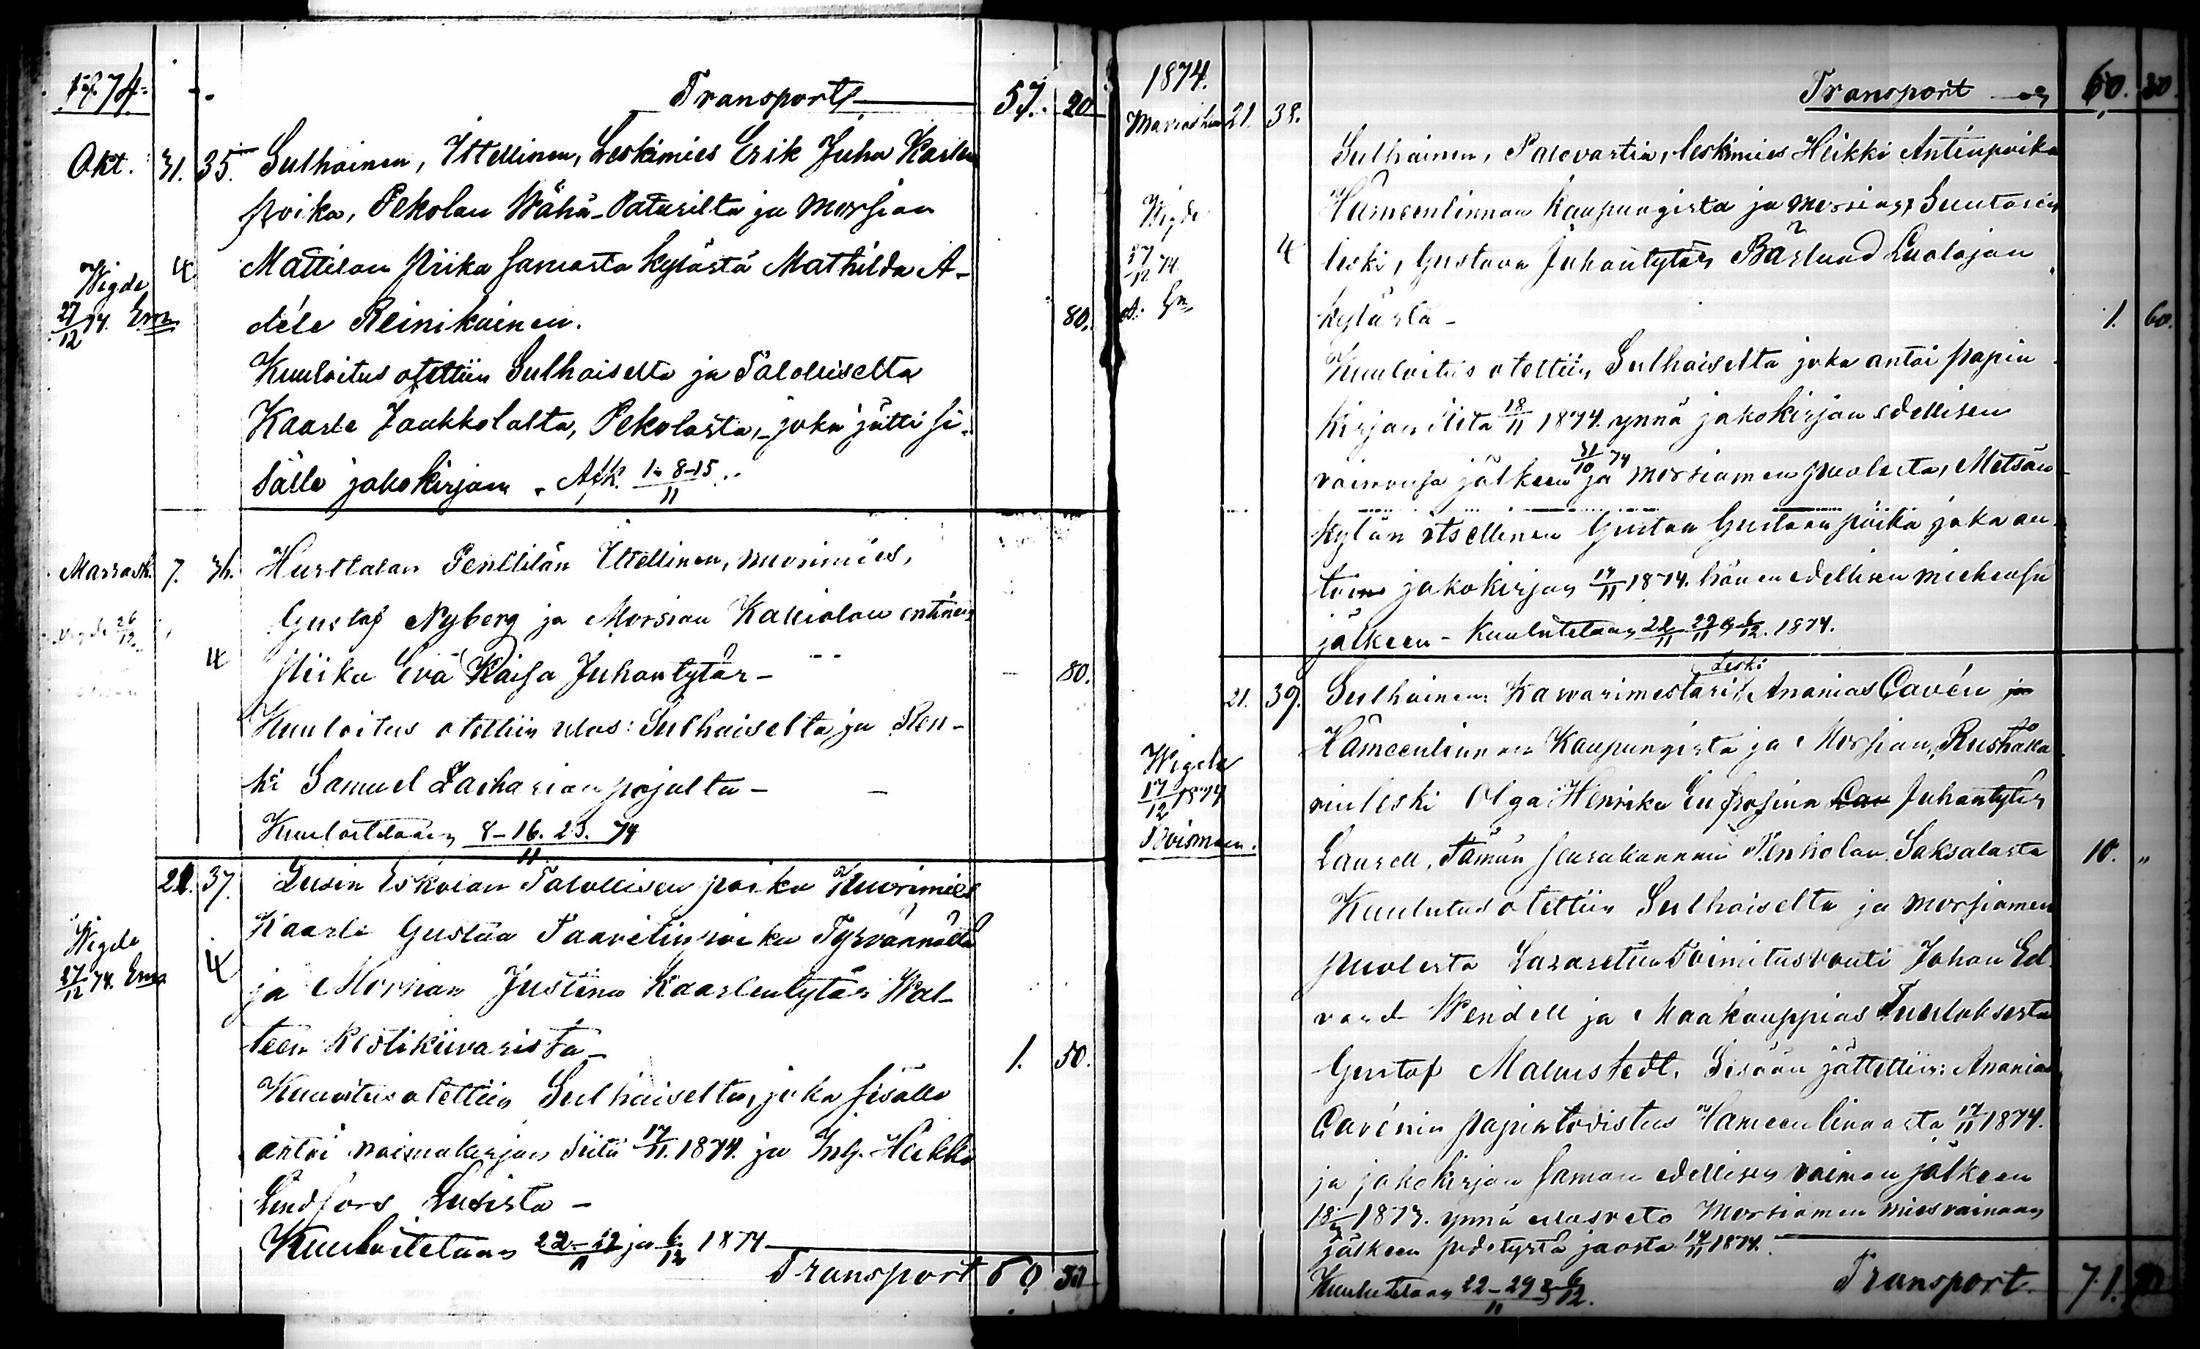 1874. Transport 57. 20
Okt. 31. 35. Sulhainen, Ittellinen, Leskimies Erik Juha Karlen
poika, Pekolan Wähä-Patarilta ja morsian
Wigde 4 Mattilan piika samasta kylästä Mathilda A-
27/12 74. Em déle Reinikainen. 80.
Kuuloitus otettiin Sulhaiselta ja Talolliselta
Kaarle Jaakkolalta, Pekolasta, joka jätti si-
sälle jakokirjan. Afk. 1-8-15/11.
Marrask. 7. 36. Hurttalan Penttilän Ittellinen, nuorimies,
Wigde 26/12 Gustaf Nyberg ja Morsian Kalliolan entinen
4 piika Eva Kaisa Juhantytär- 80.
Kuuloitus otettiin ulos: Sulhaiselta ja Ren-
ki Samuel Zacharian pojalta-
Kuuloitetaan 8-16. 23./11 74
21. 37. Lusin Eskolan Talollisen poika Nuorimies
Wigde 4 Kaarle Gustaa Taavetinpoika Tyrvännöltä
27/12 74. Em ja Morsian Justina Kaarlentytär Wal-
teen Kestikiivarista- 1. 50.
Kuuloitus otettiin Sulhaiselta, joka sisälle
antoi naimakirjan siitä 17/11. 1874. ja Inh. Heikki
Lindfors Lusista-
Kuuloitetaan 22-29/11 ja 6/12 1874
Transport 60 50
1874. Transport 60. 50.
Marraskuu 21. 38.
Sulhainen, Palovartia, leskimies Heikki Antinpoika
Wigde Hämeenlinnan Kaupungista ja morsian, Suutarin
27/12 74. 4 leski, Gustava Juhantytär Bärlund Luolajan
kylästä- 1. 60.
Kuuloitus otettiin Sulhaiselta joka antoi papin
kirjan siitä 18/11 1874. ynnä jakokirjan edellisen
vaimonsa jälkeen 31/10 74 ja morsiamen puolesta, Metsän-
kylän itsellinen Gustaa Gustaan poika joka an-
toi jakokirjan 17/11 1874. hänen edellisen miehensä
jälkeen- Kuulutetaan 22/11 29/11 & 6/12. 1874.
21. 39. Sulhainen: Kaivarimestari, Leski Ananias Cavén
Hämeenlinnan Kaupungista ja Morsian, Rusthåka-
Wigde rin leski Olga Henrika Eufrosina Juhantytär
17/12 1874 Laurell, Tämän seurakunnan Penholan Saksalasta 10. "
Kuulutus otettiin Sulhaiselta ja morsiamen
puolesta Lasaretin Toimitusvouti Johan Ed-
vard Wendell ja Maakauppias Tuuloksesta
Gustaf Malmstedt. Sisään jätettiin: Ananias
Cavénin papintodistus Hämeenlinnasta 17/11 1874.
ja jakokirjan saman edellisen vaimon jälkeen
1873. ynnä ulosveto Morsiamen miesvainaan
jälkeen pidetystä jaosta 14/11 1874.
Kuulutetaan 22-29/11 & 6/12. Transport. 71.